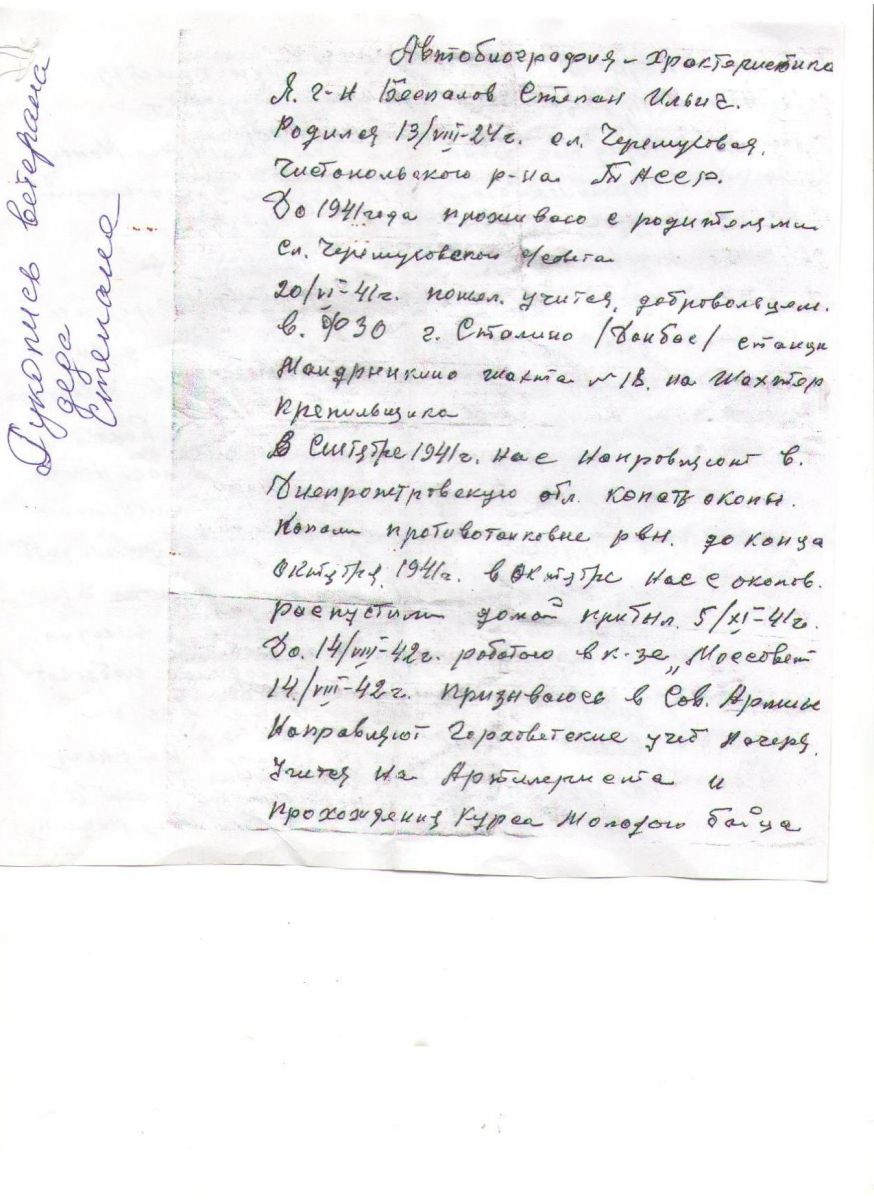 Рукопись ветерана
деда
Степана
Автобиография – Храктеристика
Я. г-н Беспалов Степан Ильич.
Родился 13/VIII-24г. сл. Черемуховая,
Чистопольского р-на ТАССР.
До 1941 года проживаю с родителями
сл. Черемуховской с/совета
20/VI-41г. пошел учится, добровольцем.
в. ФЗО г. Сталино /Донбас/ станци
Мандрыкино шахта №18. на Шахтер
Крепильщика
В Сентябре 1941г. нас напровляют в.
Днепропетровскую обл. копать окопы.
Копали противотанковые рвы. до конца
Октября 1941г. в октябре нас с окопов.
распустили домой прибыл. 5/XI-41г.
До. 14/VIII-42г. работаю в к-зе „Моссовет
14/VIII-42г. призываюсь в Сов. Армию
Направляют Гороховетские учеб лагеря.
Учится на Артилериста и
прохождения Курса Молодого бойца